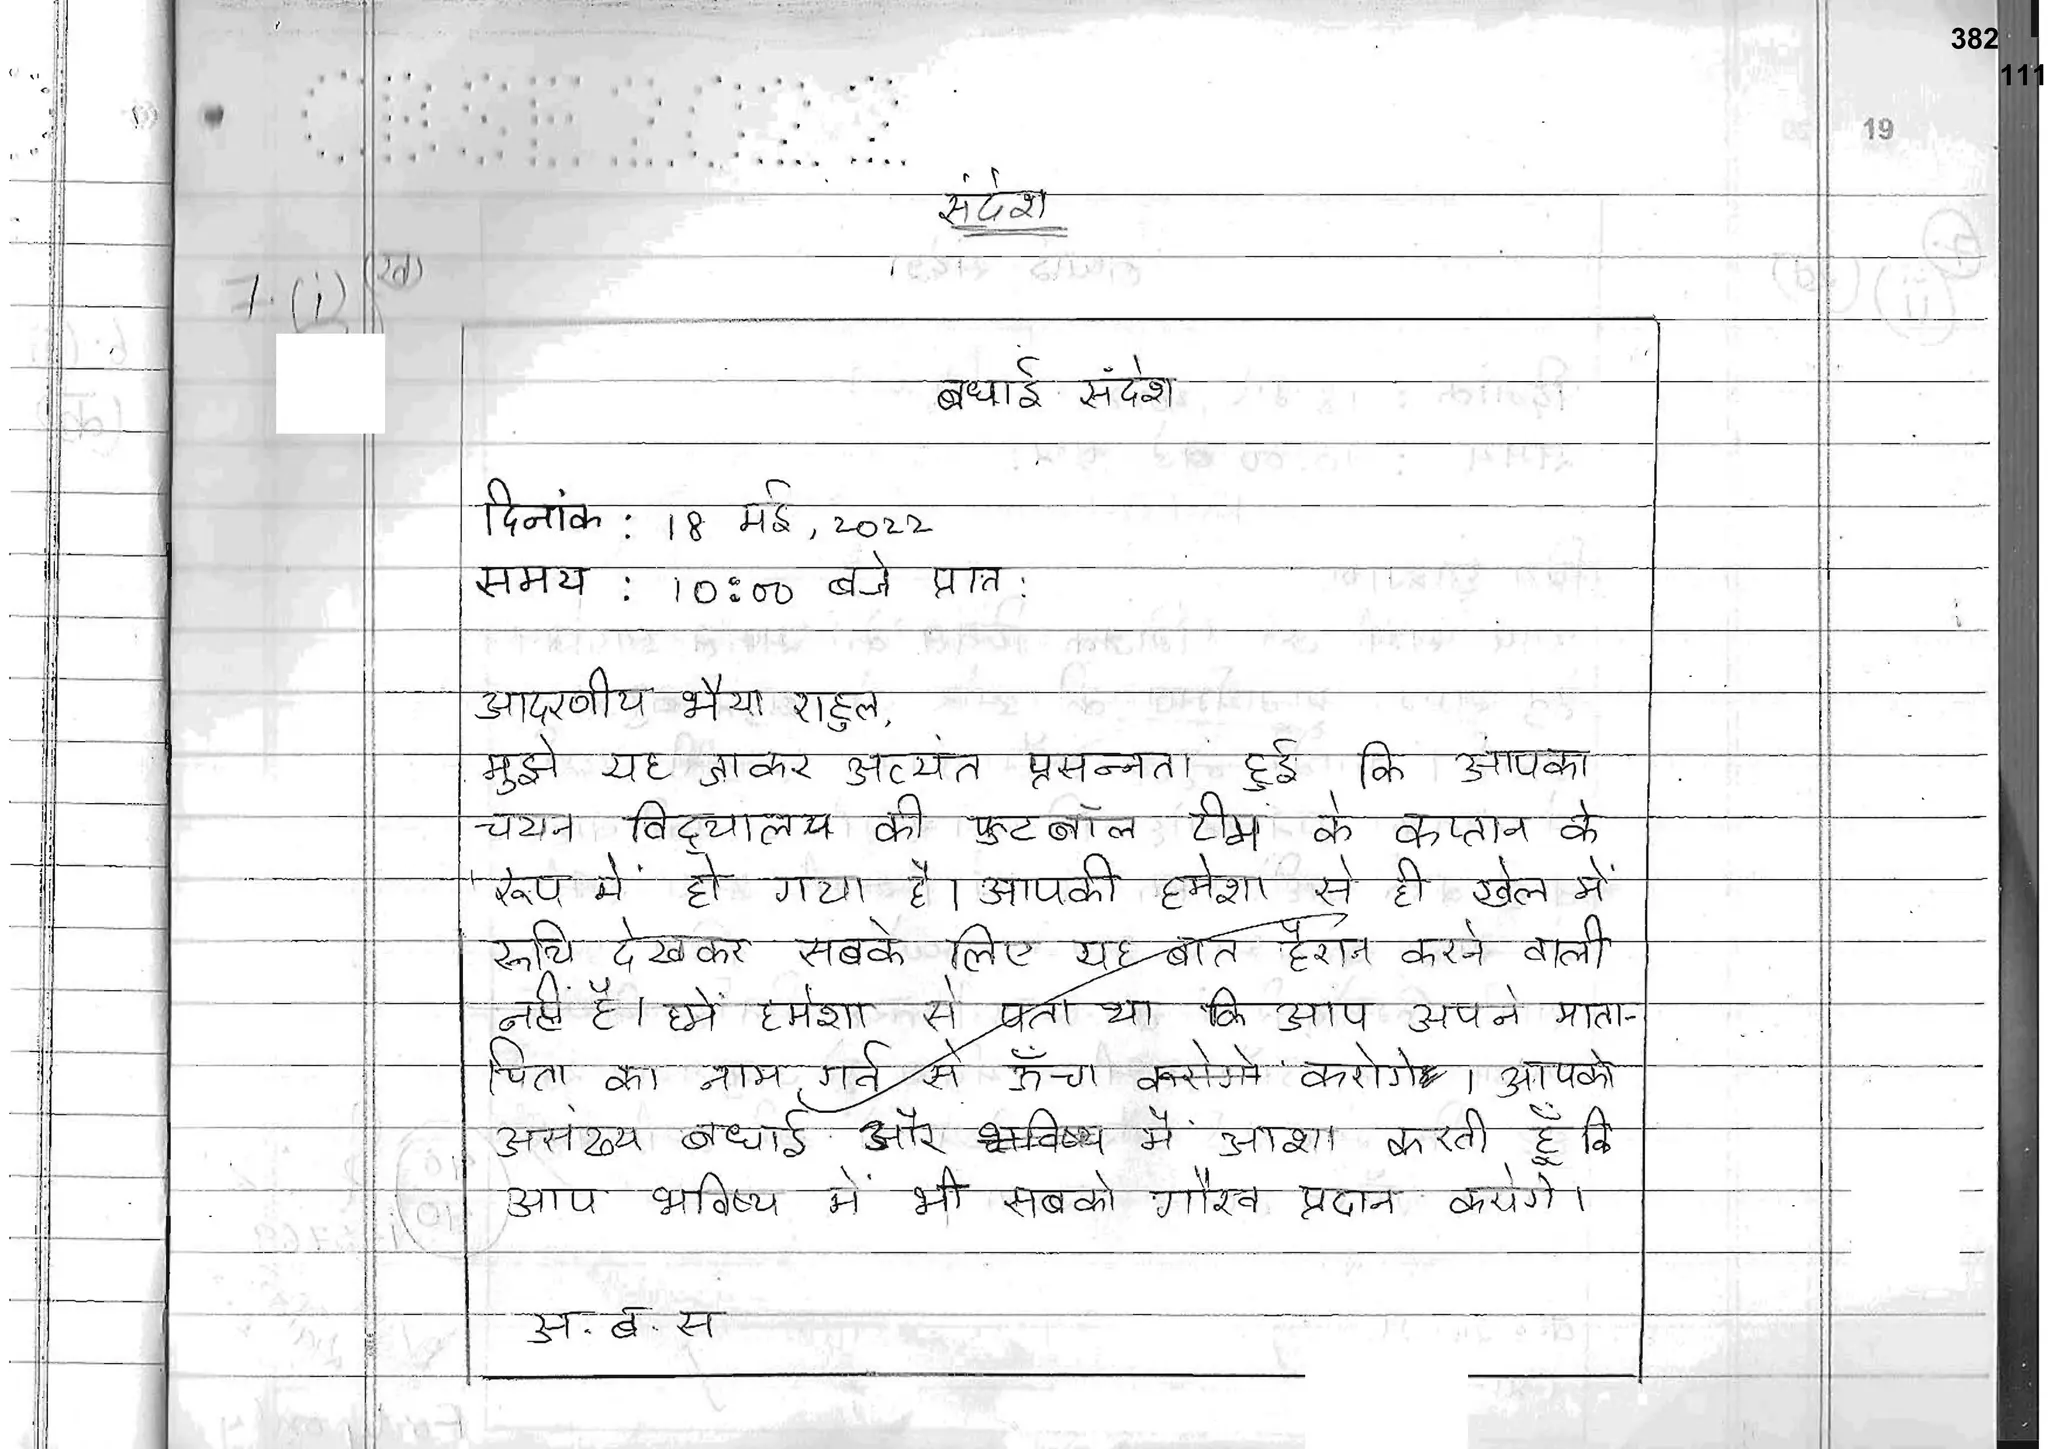 382
111
CBSE 2022
19
संदेश
7. (i) (ख)
बधाई संदेश
दिनांक : 18 मई, 2022
समय : 10:00 बजे प्रात:
आदरणीय भैया राहुल,
मुझे यह जाकर अत्यंत प्रसन्नता हुई कि आपका
चयन विद्यालय की फुटबॉल टीम के कप्तान के
रूप में हो गया है। आपकी हमेशा से ही खेल में
रूचि देखकर सबके लिए यह बात हैरान करने वाली
नहीं है। हमें हमेशा से पता था कि आप अपने माता-
पिता का नाम गर्व से ऊँचा करोगे। आपको
असंख्य बधाई और मैं आशा करती हूँ कि
आप भविष्य में भी सबको गौरव प्रदान करोगे।
अ. ब. स